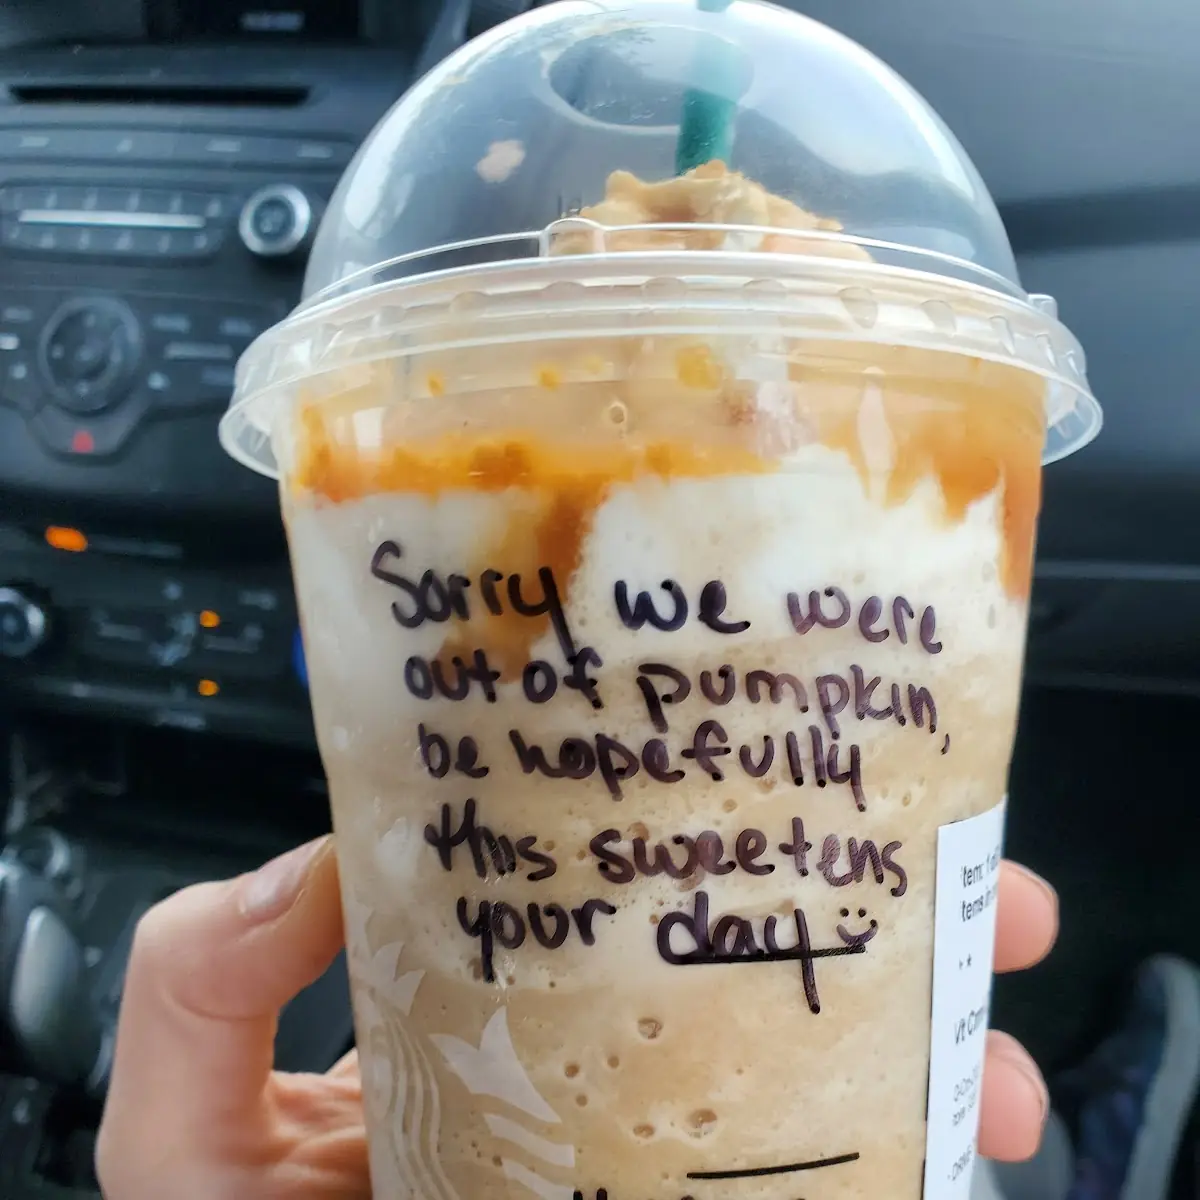 Sorry we were
out of pumpkin,
be hopefully
this sweetens
your day
Item: 1
Items in